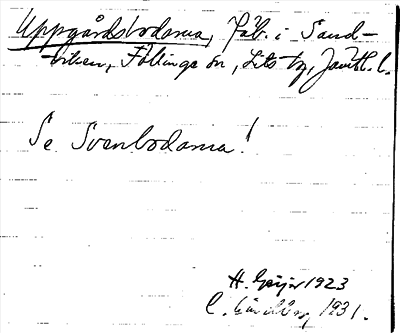 Uppgårdsbodarna, fäb. i Sand-
viken, Föllinge sn, Lits tg, Jämtl. l.
Se Svenbodarna!
H. Geijer 1923
C. 1931.